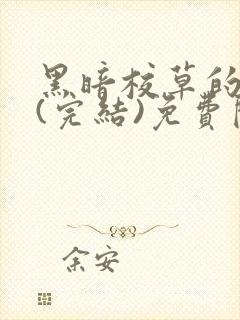 黑暗校草的
(完結)免費
余安